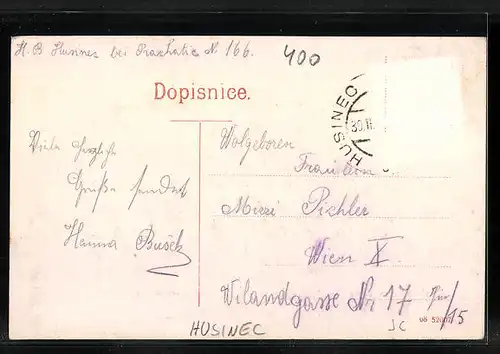 H. B. Husinec bei Prachatic N. 166.
400
Dopisnice.
HUSINEC
30.II
Viele herzliche
Grüße sendet
Hanna Bušek
Wolgeboren
Fräulein
Miezi Pichler
Wien X.
Wilandgasse Nr 17
/15
98 52007
HUSINEC